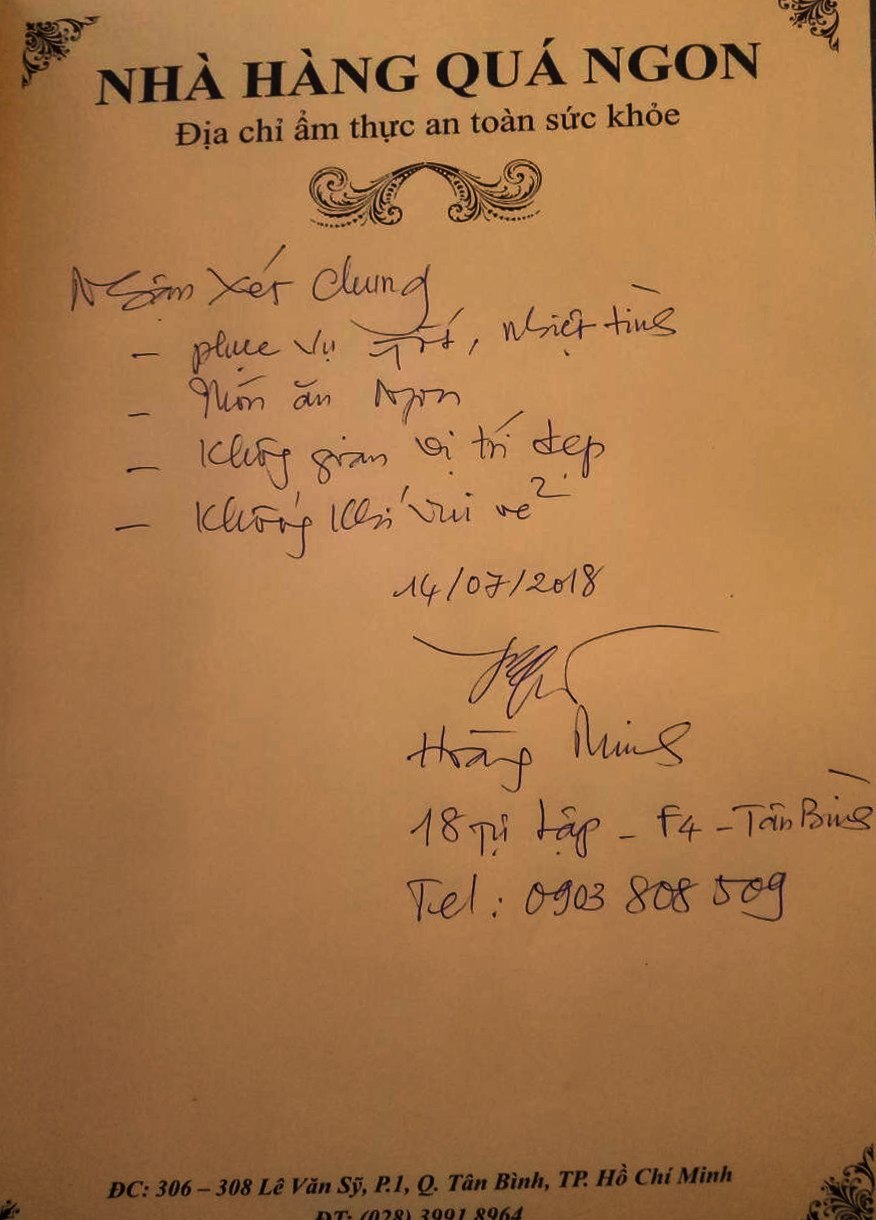 NHÀ HÀNG QUÁ NGON
Địa chỉ ẩm thực an toàn sức khỏe
Nhận xét chung
- phục vụ tốt, nhiệt tình
- Món ăn Ngon
- Không gian vị trí đẹp
- Không khí vui vẻ
14/07/2018
Hoàng Minh
18 Tự Lập - F4 - Tân Bình
Tel: 0903 808 509
ĐC: 306 – 308 Lê Văn Sỹ, P.1, Q. Tân Bình, TP. Hồ Chí Minh
ĐT: (028) 3991 8964